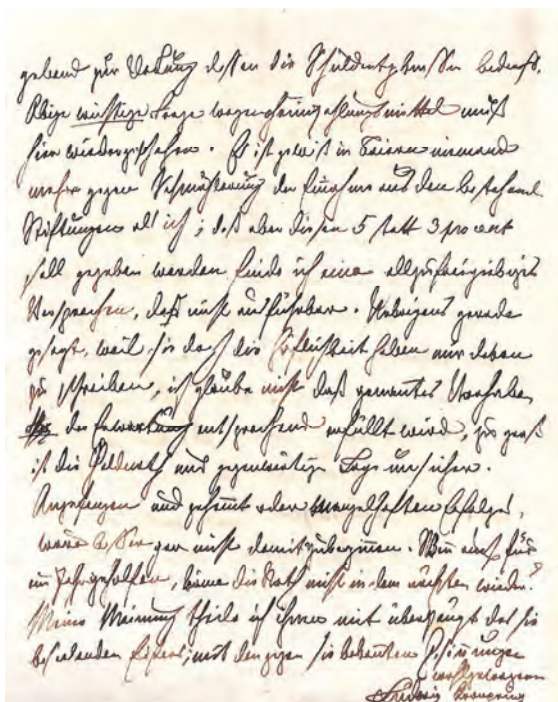 gebend zur Deckung dessen die Schuldentgkasse bedarf.
Obige wichtige Frage wegen Heimzahlungsmittel muß
hier wiedergeschehen. Es ist gewiß in Baiern niemand
mehr gegen Schmählerung der Einnahme aus den bestehend
Stiftungen als ich; daß aber diesen 5 statt 3 procent
soll gegeben werden finde ich eine allzufreigiebige
Versprechen, daß nicht ausführbar. Uebrigens gerade
gesagt, weil sie doch die Höflichkeit haben mir
zu schreiben, ich glaube nicht daß genanntes Vorhaben
der Erwartung entsprechend erfüllt wird, zu groß
ist die Geldnoth und gegenwärtige Lage unsicher.
Angefangen und gehemt oder mangelhaften Erfolges,
wäre besser gar nicht damit zu beginnen. Wenn auch für
ein Jahr geholfen, käme die Noth nicht in dem nächsten wieder?
Meine Meinung theile ich ihnen mit überzeugt das sie
Eifers; mit den gegen sie bekannten Gesinnungen
wohlgewogener
Ludwig